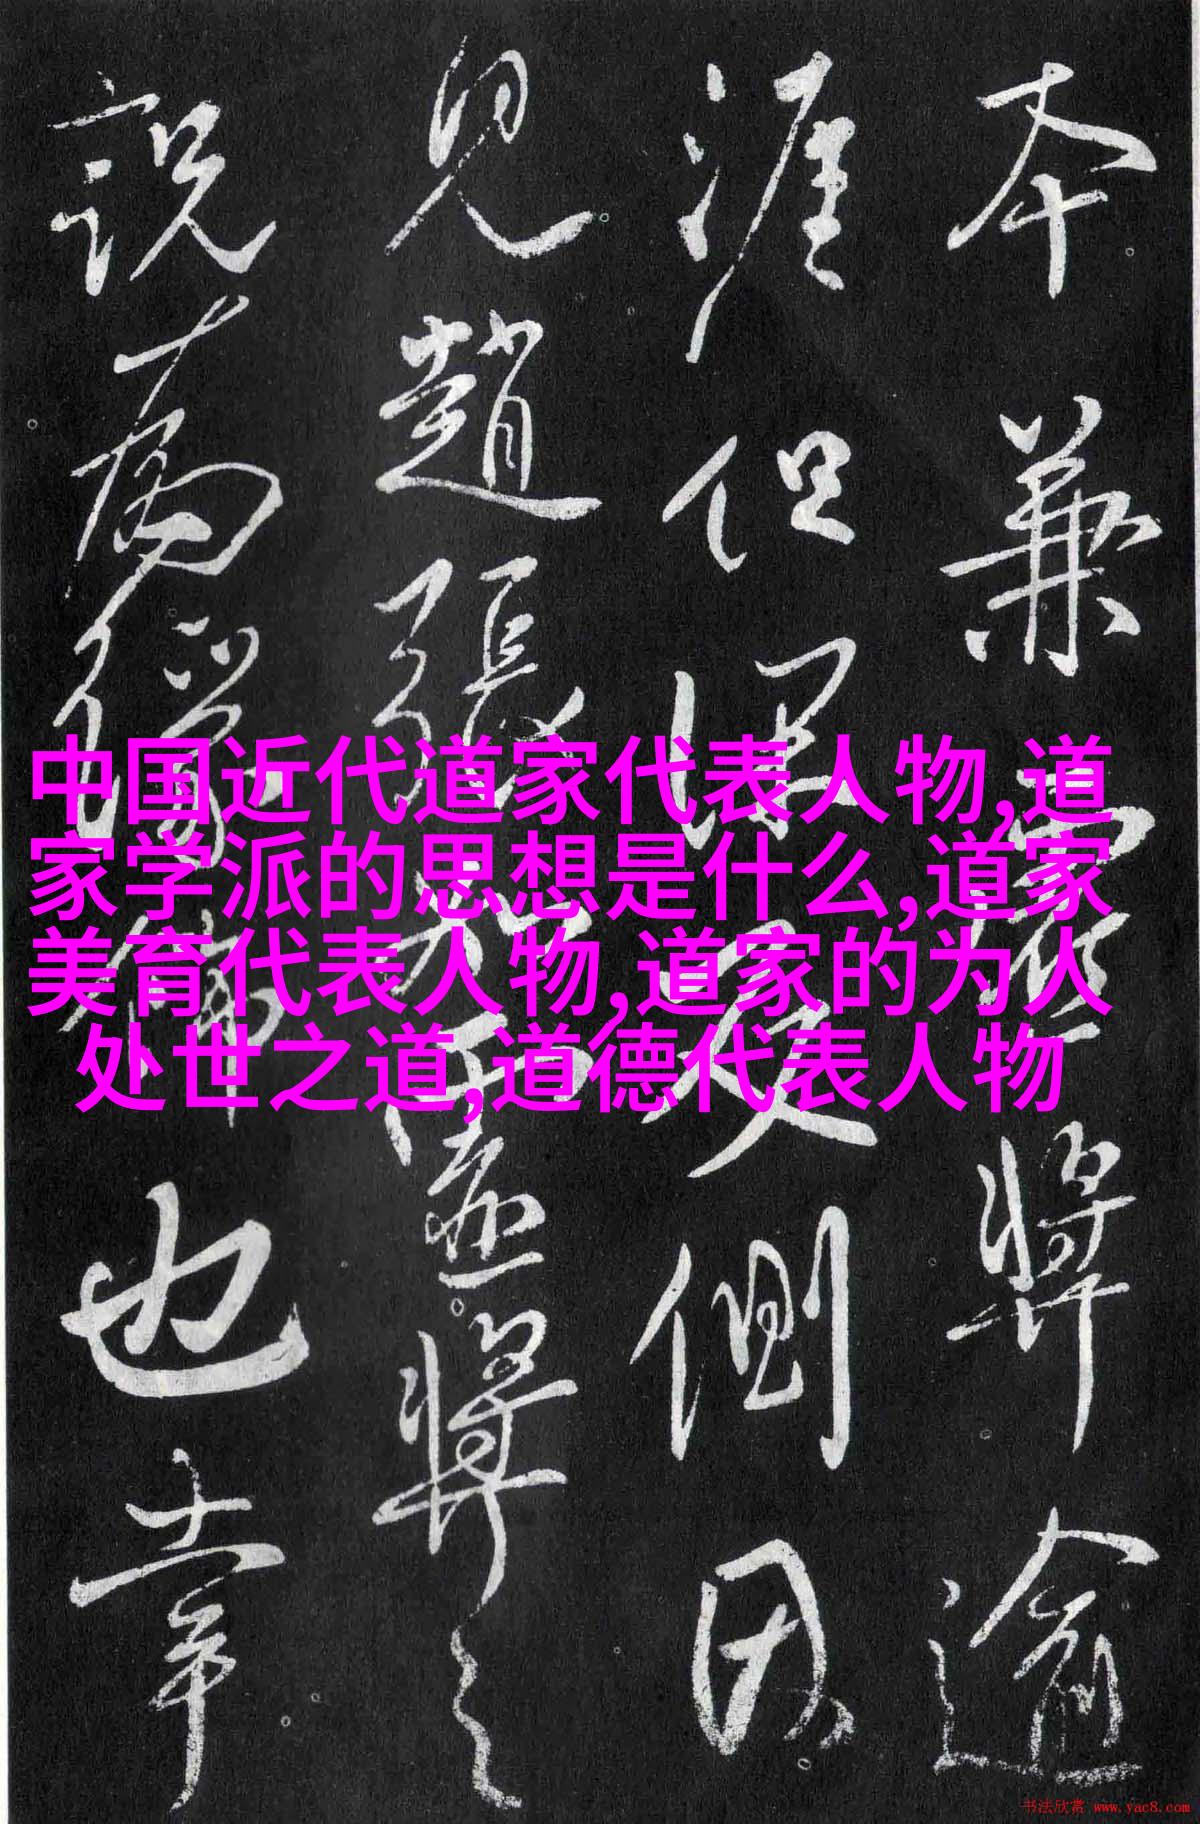 本兼將逾
涯但反側因
見趙張將
說為也幸
中国近代道家代表人物,道
家学派的思想是什么,道家
美育代表人物,道家的为人
处世之道,道德代表人物
书法欣赏 www.yac8.com